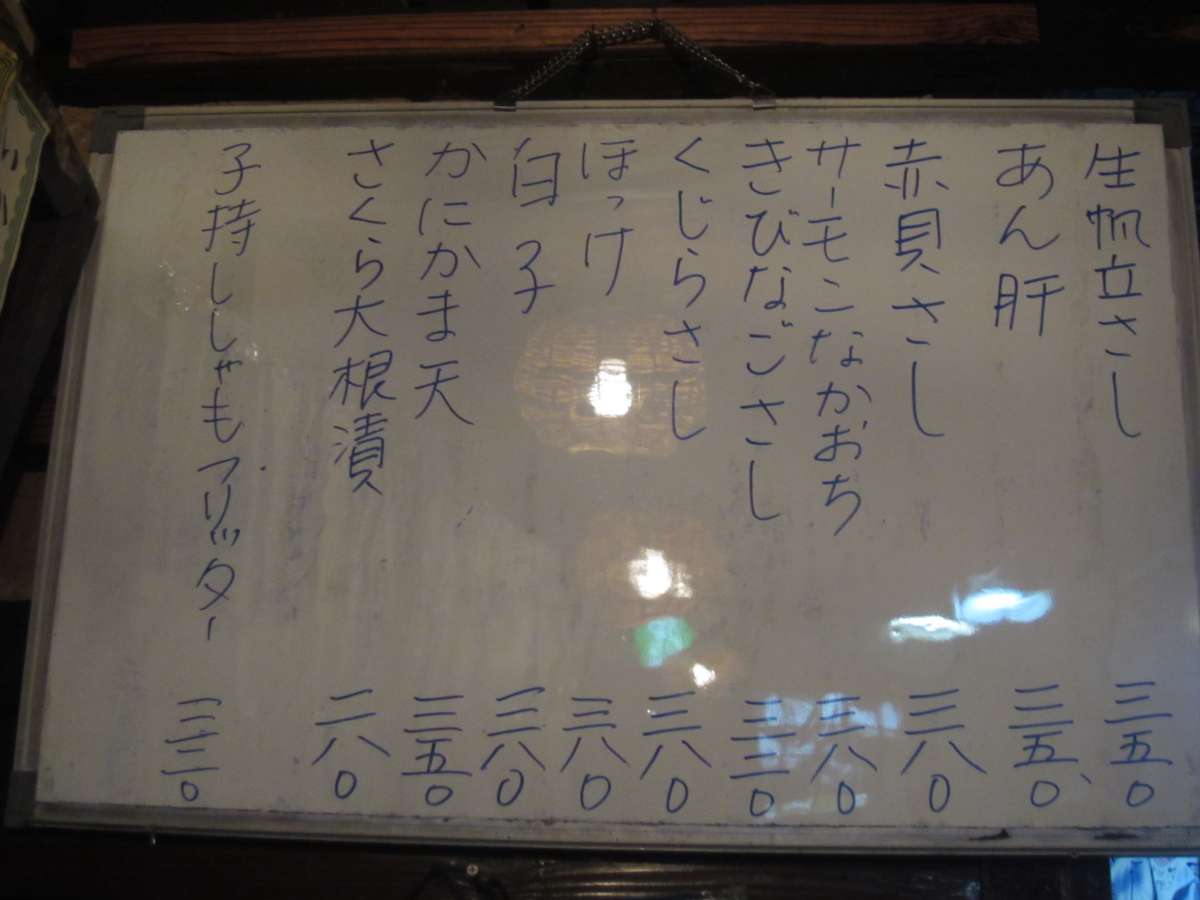 生帆立さし 三五0
あん肝 三五0
赤貝さし 三八0
サーモンなかおち 三八0
きびなごさし 三三0
くじらさし 三八0
ほっけ 三八0
白子 三八0
かにかま天 三五0
さくら大根漬 二八0
子持ししゃもフリッター 三三0